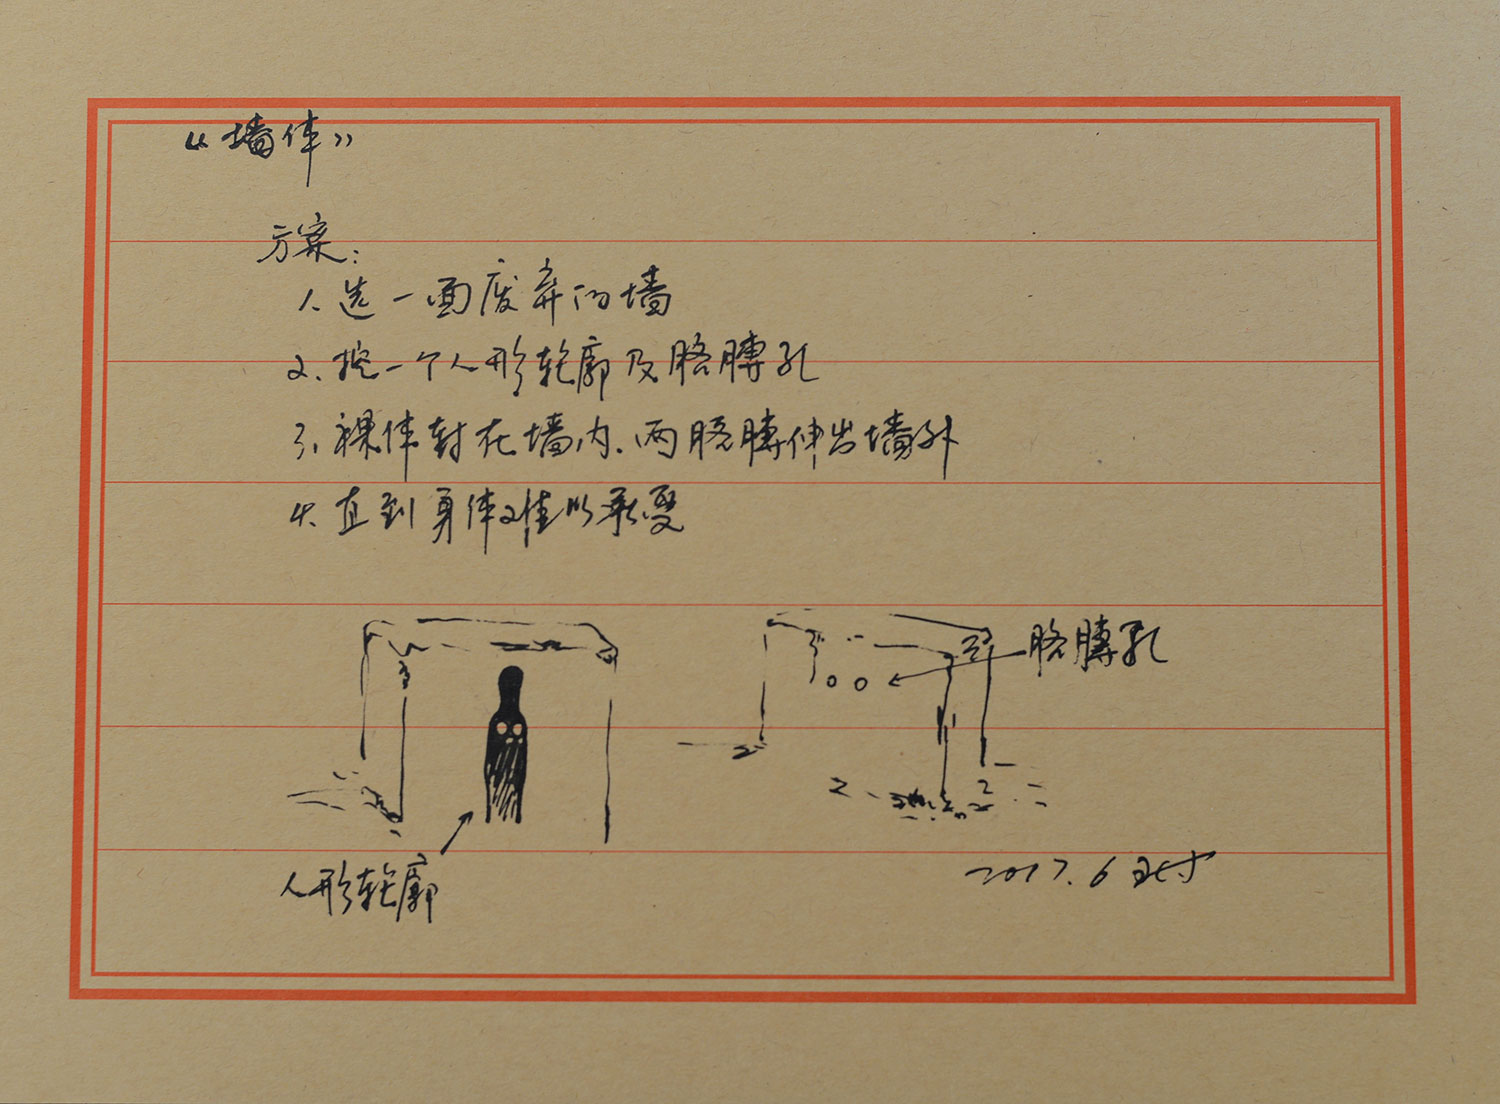 《墙体》
方案:
1. 选一面废弃的墙
2. 挖一个人形轮廓及胳膊孔
3. 裸体封在墙内、两胳膊伸出墙外
4. 直到身体难以承受
胳膊孔
人形轮廓
2017.6